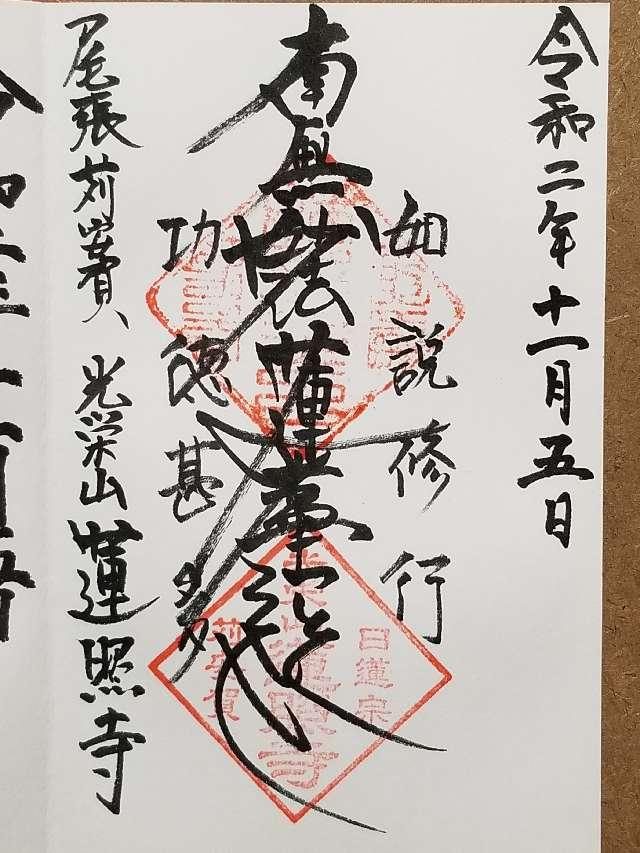 令和二年十一月五日
如説修行
南無妙法蓮華経
功徳甚多
尾張苅安賀 光栄山 蓮照寺
日蓮宗
光栄山蓮照寺
苅安賀